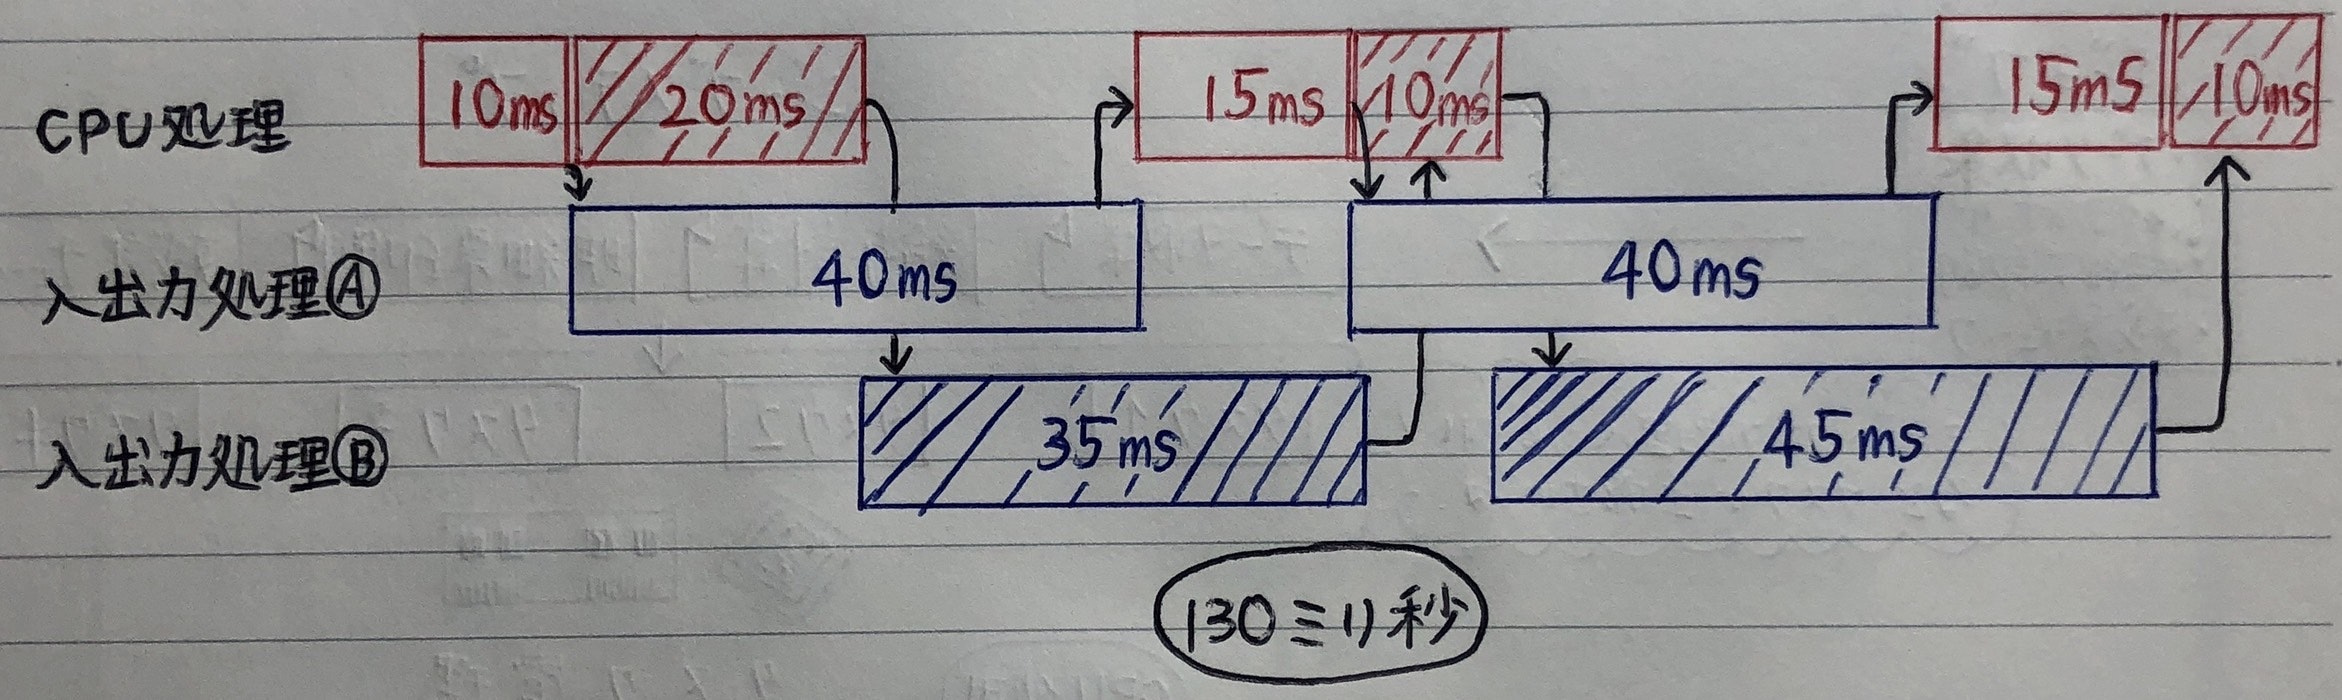 CPU処理 10ms 20ms 15ms 10ms 15mS 10ms
入出力処理Ⓐ 40ms 40ms
入出力処理Ⓑ 35ms 45ms
130ミリ秒